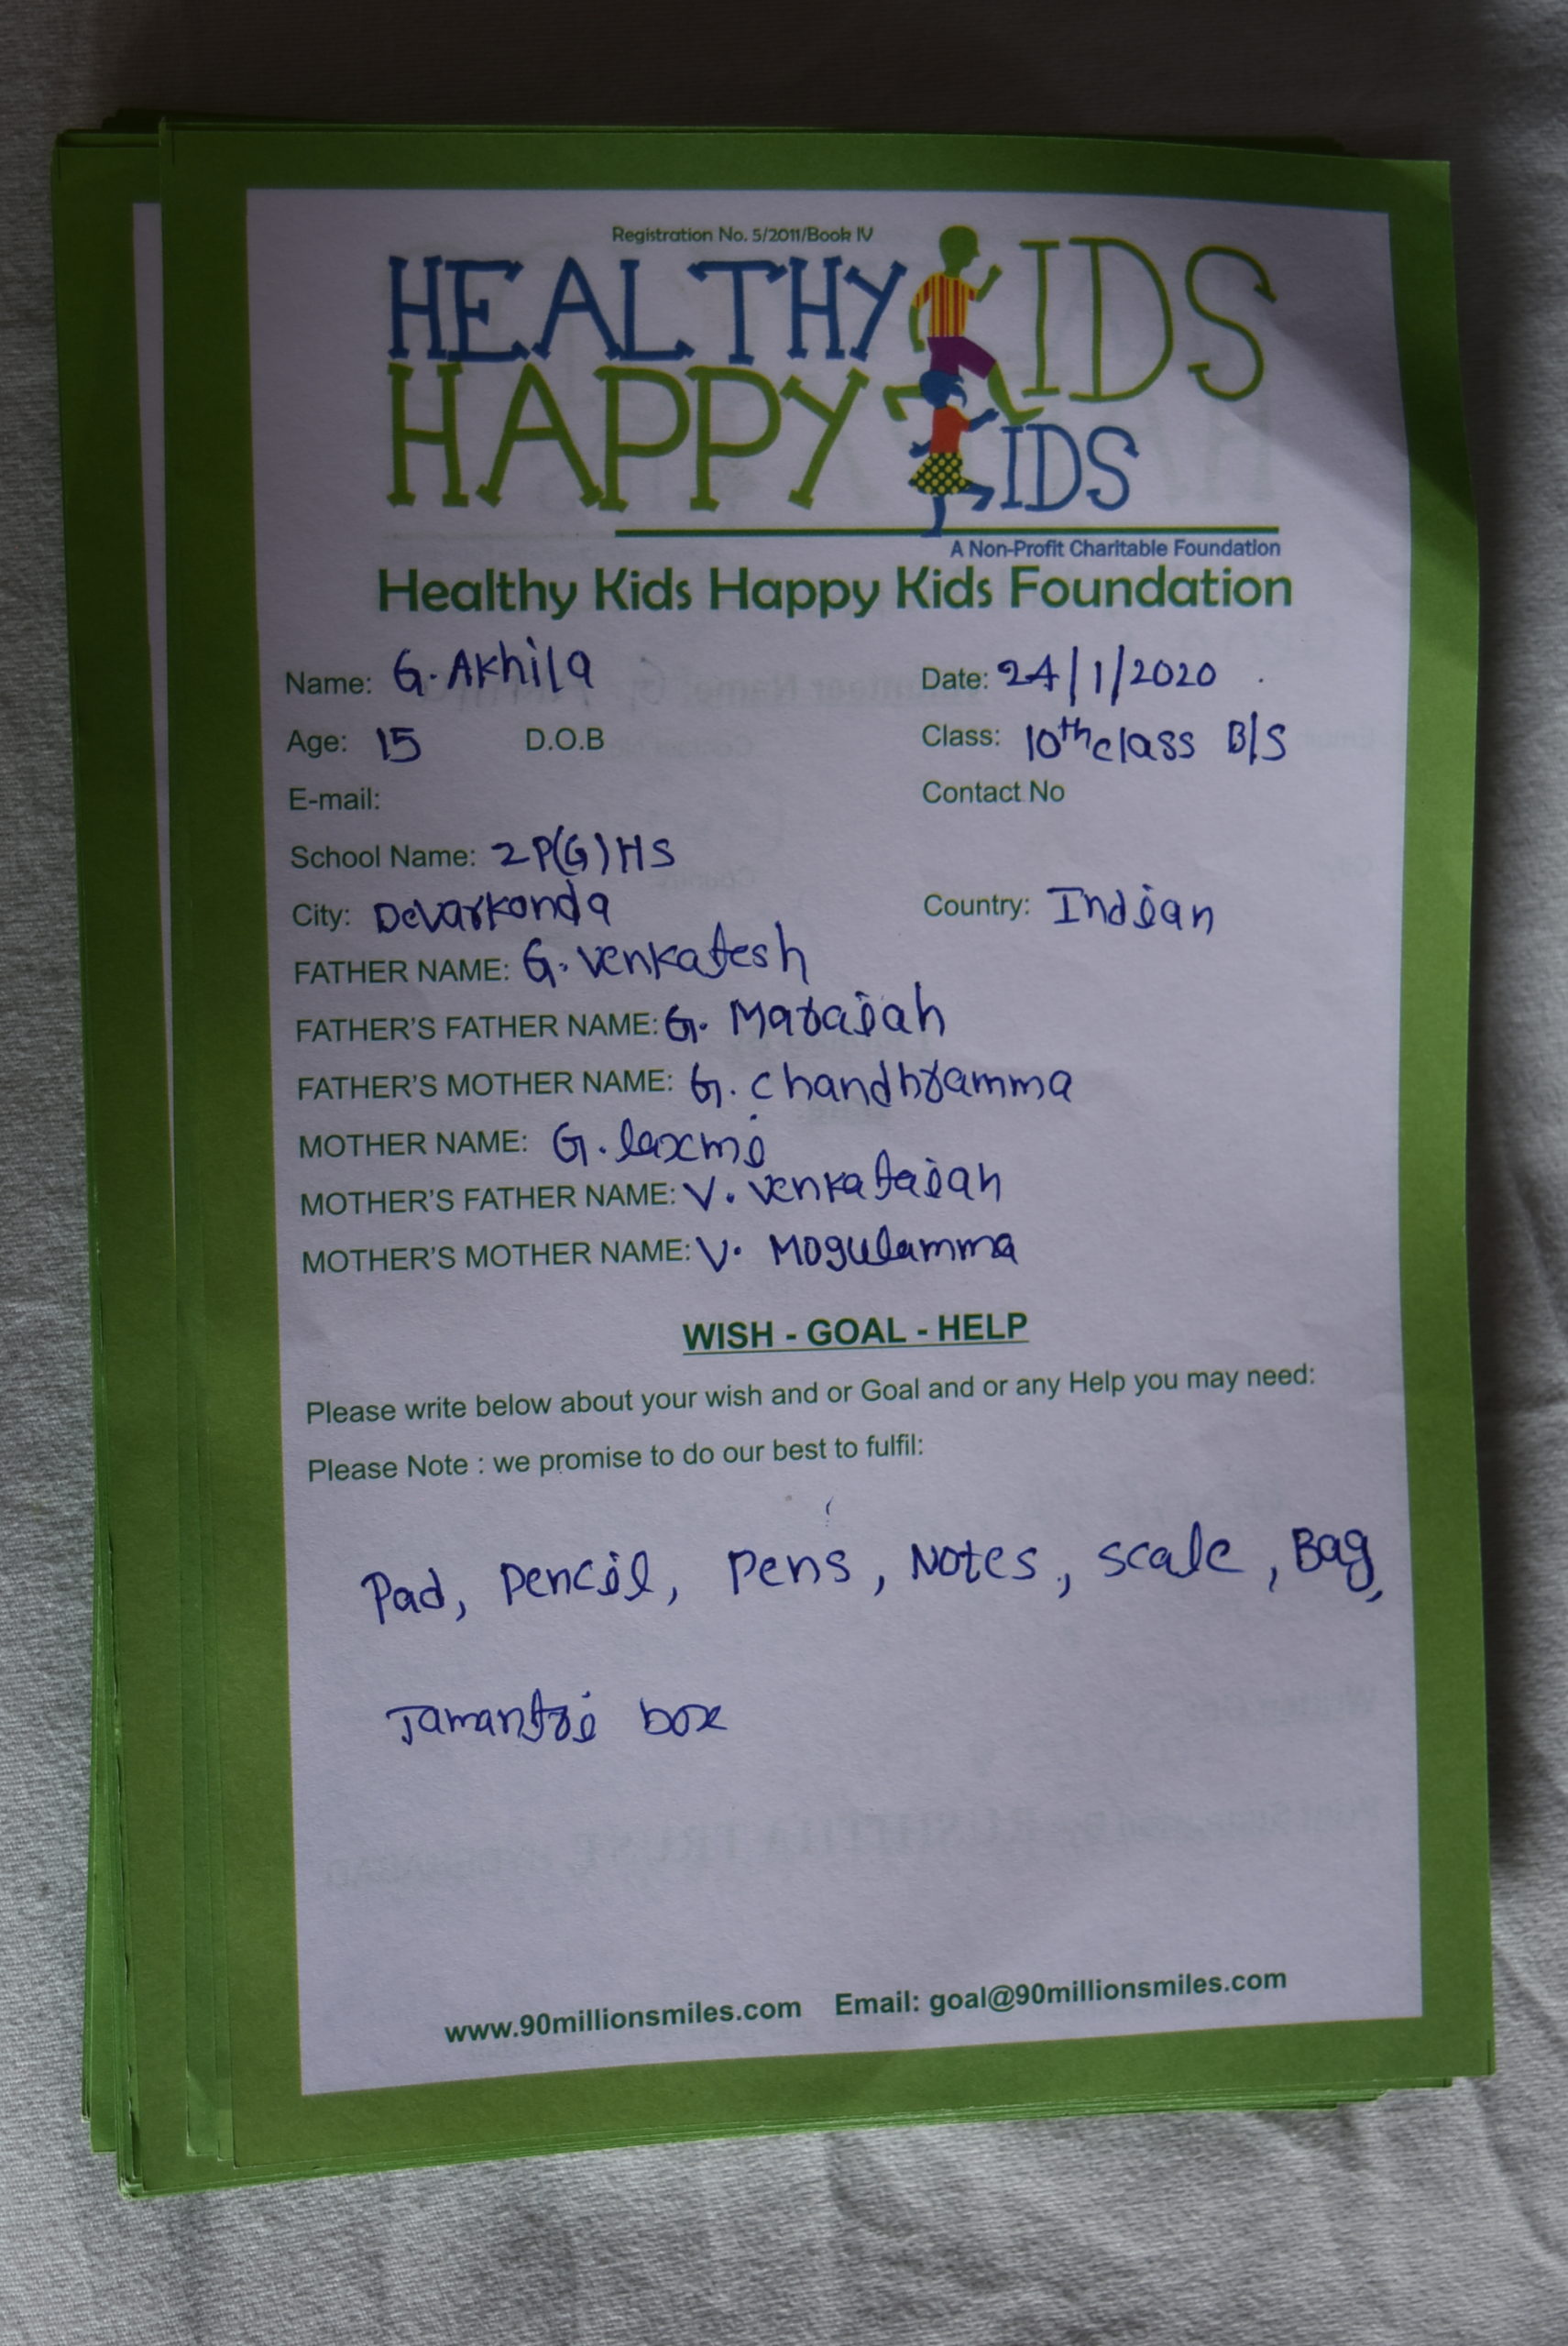 Registration No. 5/2011/Book IV
HEALTHY KIDS
HAPPY KIDS
A Non-Profit Charitable Foundation
Healthy Kids Happy Kids Foundation
Name: G. Akhila Date: 24/1/2020
Age: 15 D.O.B Class: 10th class B/S
E-mail: Contact No
School Name: 2P(G)HS
City: Devarkonda Country: Indian
FATHER NAME: G. Venkatesh
FATHER'S FATHER NAME: G. Maraiah
FATHER'S MOTHER NAME: G. Chandhramma
MOTHER NAME: G. laxmi
MOTHER'S FATHER NAME: V. Venkataiah
MOTHER'S MOTHER NAME: V. Mogulamma
WISH - GOAL - HELP
Please write below about your wish and or Goal and or any Help you may need:
Please Note : we promise to do our best to fulfil:
Pad, Pencil, Pens, Notes, scale, Bag,
Jamantri box
www.90millionsmiles.com Email: goal@90millionsmiles.com